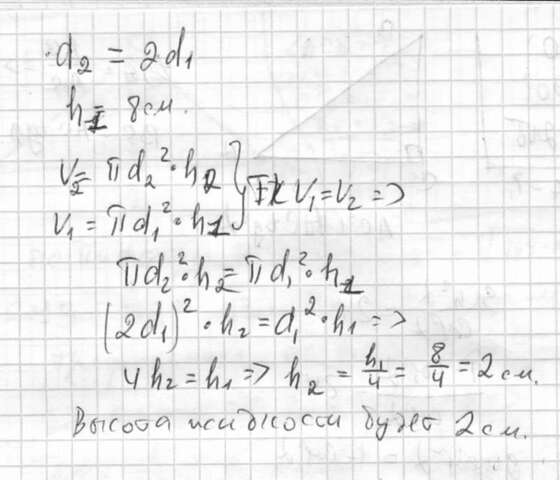 d₂ = 2d₁
h₁ = 8см.
V₂ = πd₂²·h₂
V₁ = πd₁²·h₁ } Т.К V₁=V₂ =>
πd₂²·h₂ = πd₁²·h₁
(2d₁)²·h₂ = d₁²·h₁ =>
4h₂ = h₁ => h₂ = h₁/4 = 8/4 = 2 см.
Высота жидкости будет 2 см.